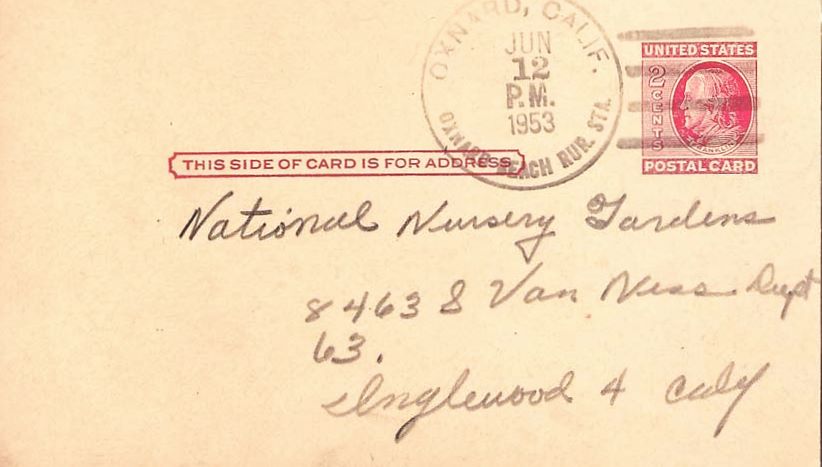 OXNARD, CALIF.
JUN
12
P.M.
1953
OXNARD BEACH RUR. STA.
UNITED STATES
2 CENTS
FRANKLIN
POSTAL CARD
THIS SIDE OF CARD IS FOR ADDRESS
National Nursery Gardens
8463 S Van Ness Dept
63.
Inglewood 4 Calif